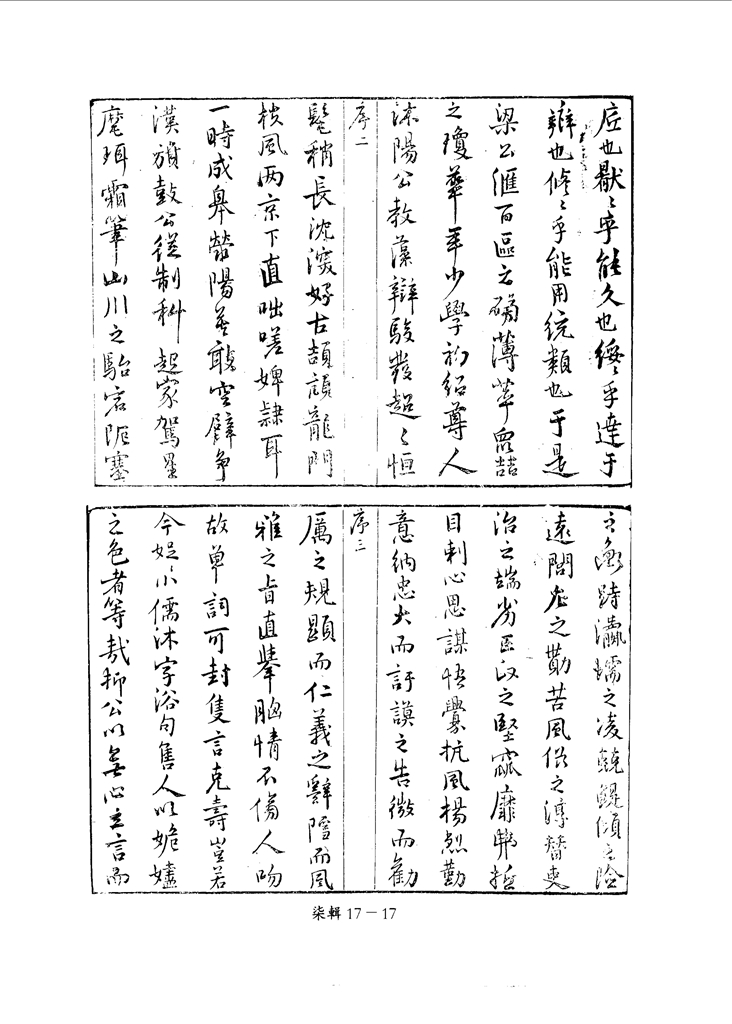 也猒〻乎能久也纓〻乎達于
辯也修〻乎能用統類也于是
梁公匯百區之磅薄萃眾喆
之瓊華年少學初紹尊人
沭陽公教藻辯駿發超〻恒
序二
髦稍長沈湥好古頡頏龍門
扶風两京下直咄嗟婢隸耳
一時成皋滎陽莫敢空壁争
漢旗鼓公從制科起家駕星
麾珥霜筆山川之駘宕阨塞
之衡跱瀛壖之凌兢鯤傾之險
遠閭左之勤苦風俗之淳替吏
治之端劣臣之堅窳靡
目刺心思謀悟爨抗風揚烈勤
意納忠大而訏謨之告微而勸
序三
厲之規顯而仁義之辭隱而風
雅之旨直攀胸情不傷人吻
故单詞可封隻言克壽豈若
今娖小儒沐字浴句售人以媠嫿
之色者等哉抑公以無心立言而
柒輯 17－17